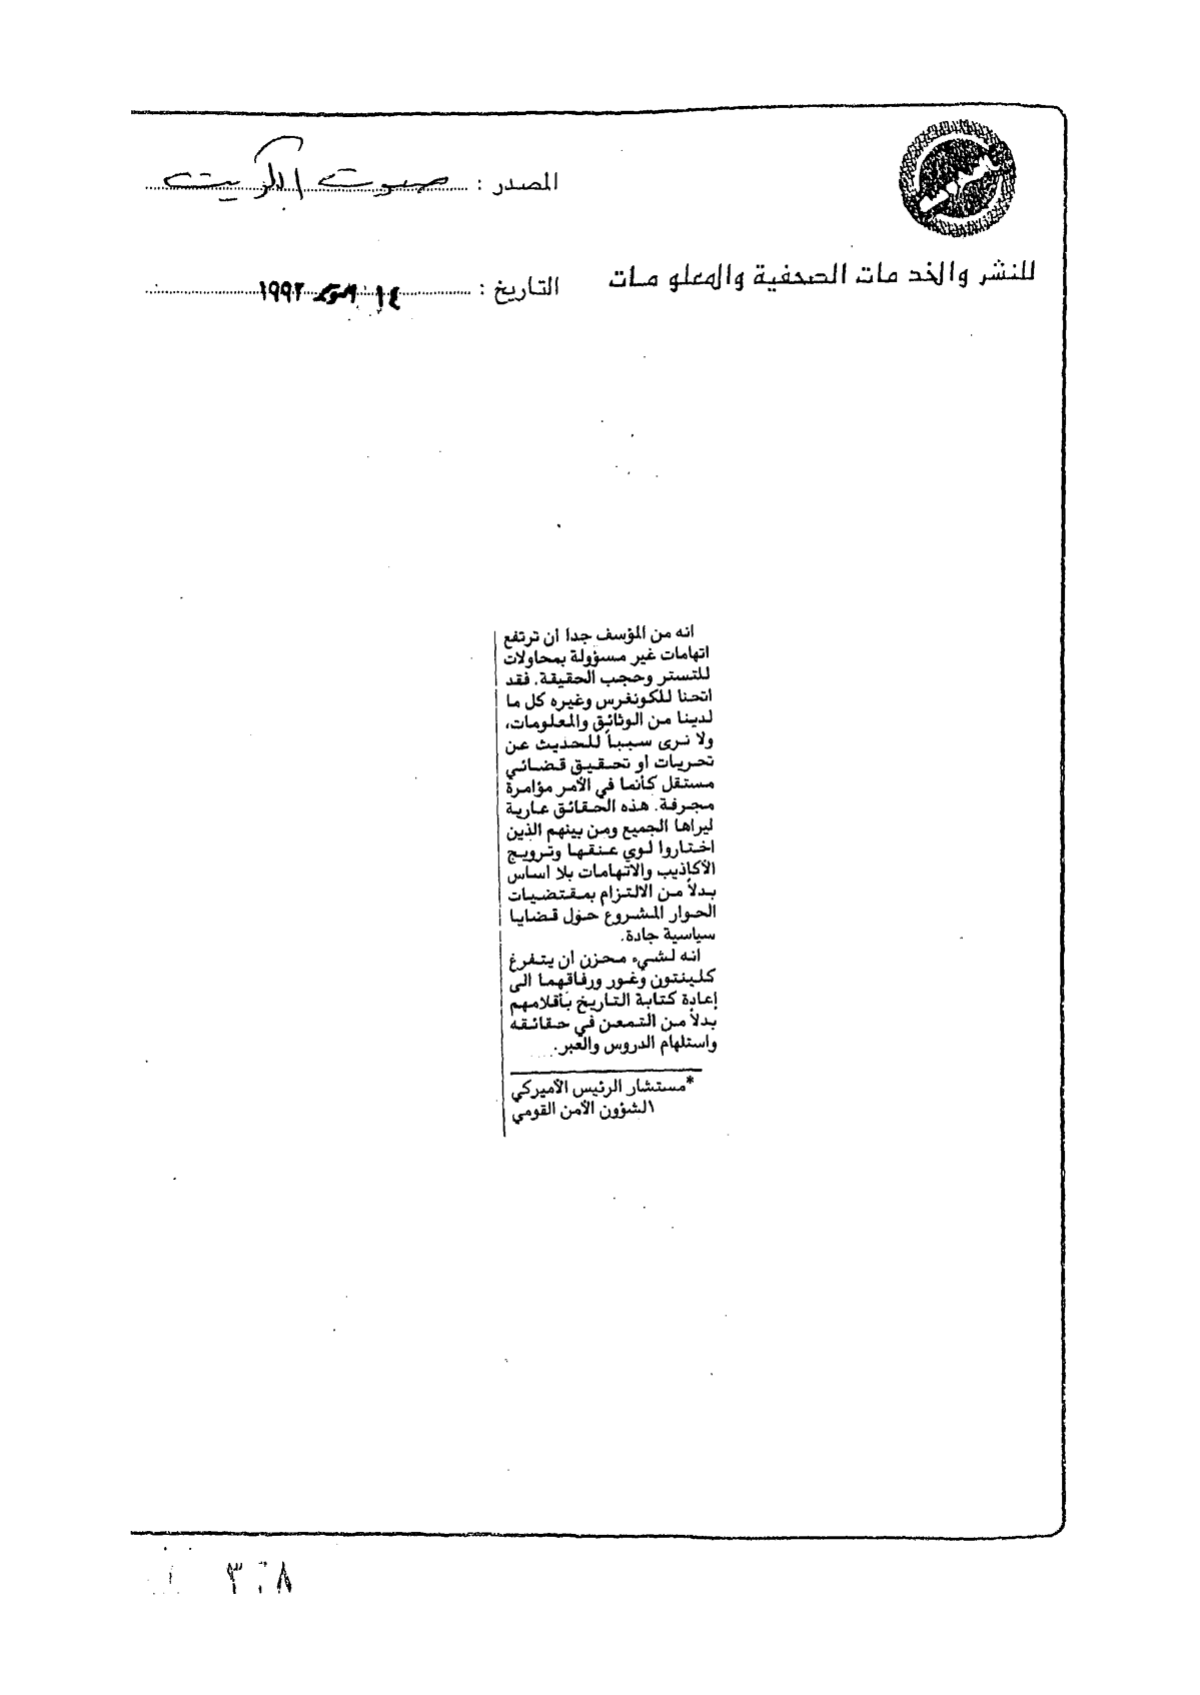 المصدر : صوت الكويت
للنشر والخدمات الصحفية والمعلومات
التاريخ : ١٤ اكتوبر ١٩٩٢
انه من المؤسف جدا ان ترتفع
اتهامات غير مسؤولة بمحاولات
للتستر وحجب الحقيقة. فقد
اتحنا للكونغرس وغيره كل ما
لدينا من الوثائق والمعلومات،
ولا نرى سبباً للحديث عن
تحريات او تحقيق قضائي
مستقل كأنما في الأمر مؤامرة
مجرفة. هذه الحقائق عارية
ليراها الجميع ومن بينهم الذين
اختاروا لوي عنقها وترويج
الأكاذيب والاتهامات بلا اساس
بدلاً من الالتزام بمقتضيات
الحوار المشروع حول قضايا
سياسية جادة.
انه لشيء محزن ان يتفرغ
كلينتون وغور ورفاقهما الى
إعادة كتابة التاريخ بأقلامهم
بدلاً من التمعن في حقائقه
واستلهام الدروس والعبر.
*مستشار الرئيس الأميركي
لشؤون الأمن القومي